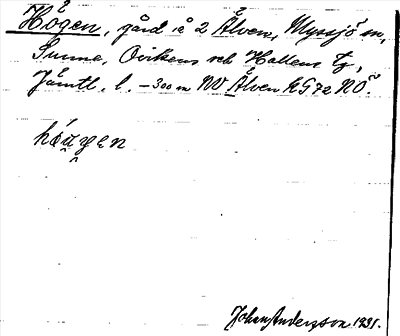 Högen, gård i å 2 Älven, Myssjö sn,
Sunne, Ovikens och Hallens tg,
Jämtl. l. — 300 m NV Älven EG 72 NÖ.
Johan Anderzson 1931.